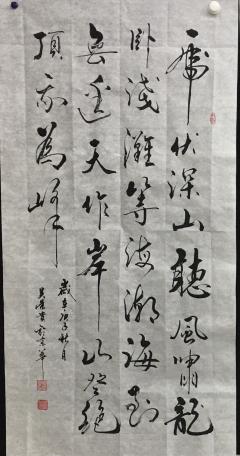 一虎伏深山聽風嘯龍
卧淺灘等海潮海到
無邊天作岸山登絶
頂我為峰
歲在庚子秋月